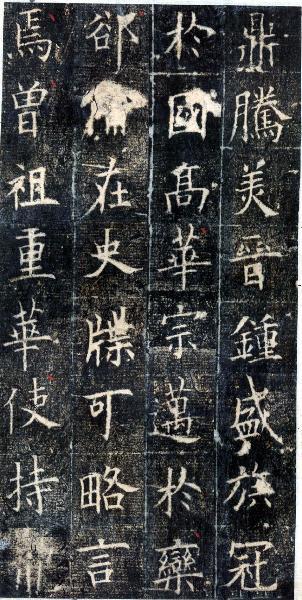 鼎騰美晉鍾盛族冠
於國髙華宗邁於欒
郤在史牒可略言
焉曾祖重華使持